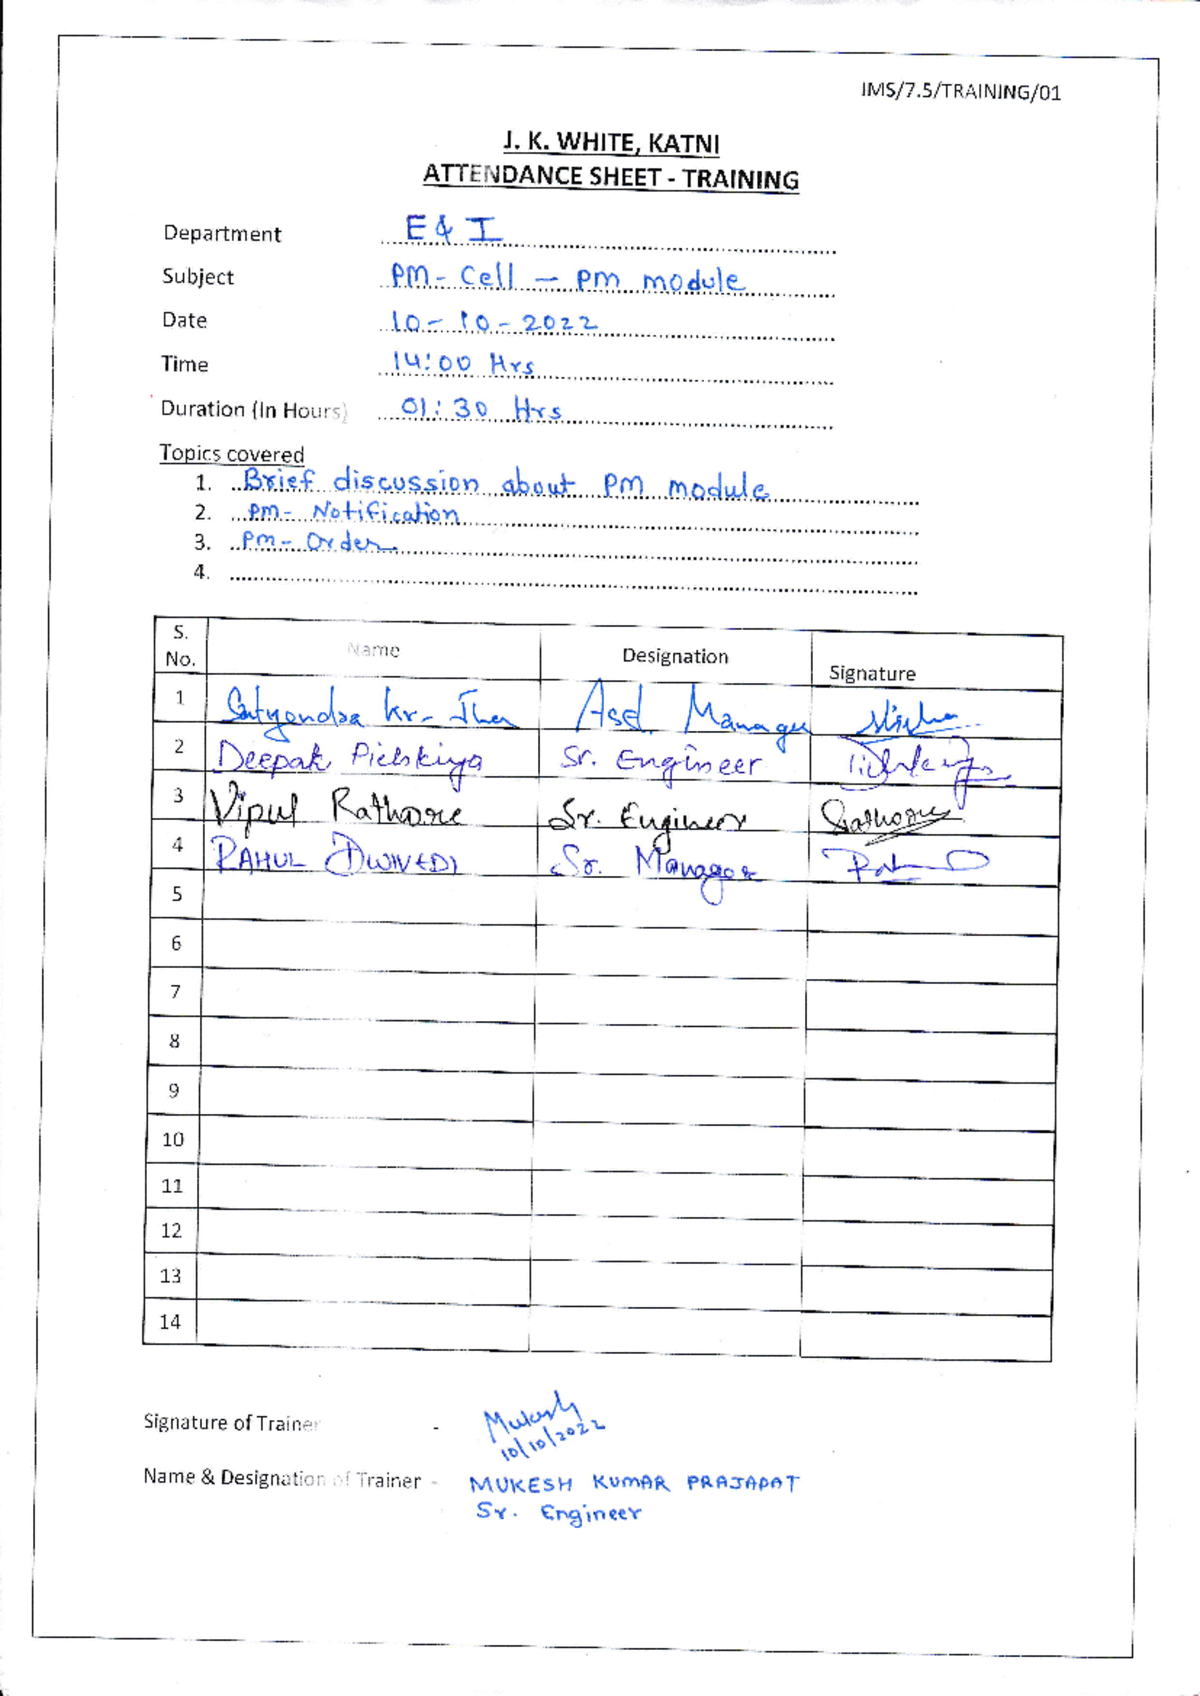 IMS/7.5/TRAINING/01
J. K. WHITE, KATNI
ATTENDANCE SHEET - TRAINING
Department E & I
Subject PM- Cell — PM module
Date 10-10-2022
Time 14:00 Hrs
Duration (In Hours) 01:30 Hrs
Topics covered
1. Brief discussion about PM module
2. PM- Notification
3. PM- Order.
4.
S. No. Name Designation Signature
1 Satyendra Kr- Jha Asst. Manager
2 Deepak Sr. Engineer
3 Vipul Rathore Sr. Engineer Rathore
4 RAHUL DWIVEDI Sr. Manager
5
6
7
8
9
10
11
12
13
14
Signature of Trainer - Mukesh
10/10/2022
Name & Designation of Trainer - MUKESH KUMAR PRAJAPAT
Sr. Engineer